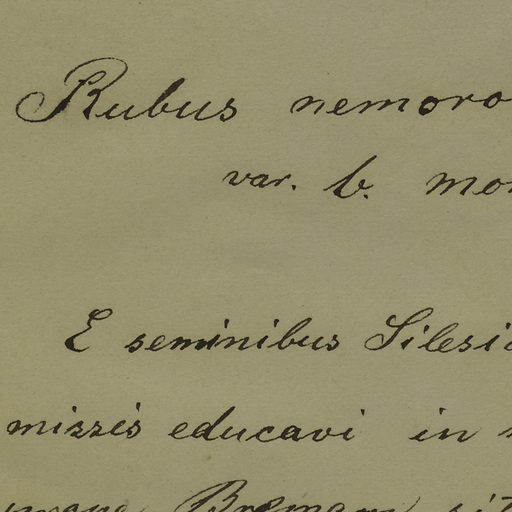 Rubus nemoro
var. b. mo
E seminibus Silesi
missis educavi in
Bremam sit